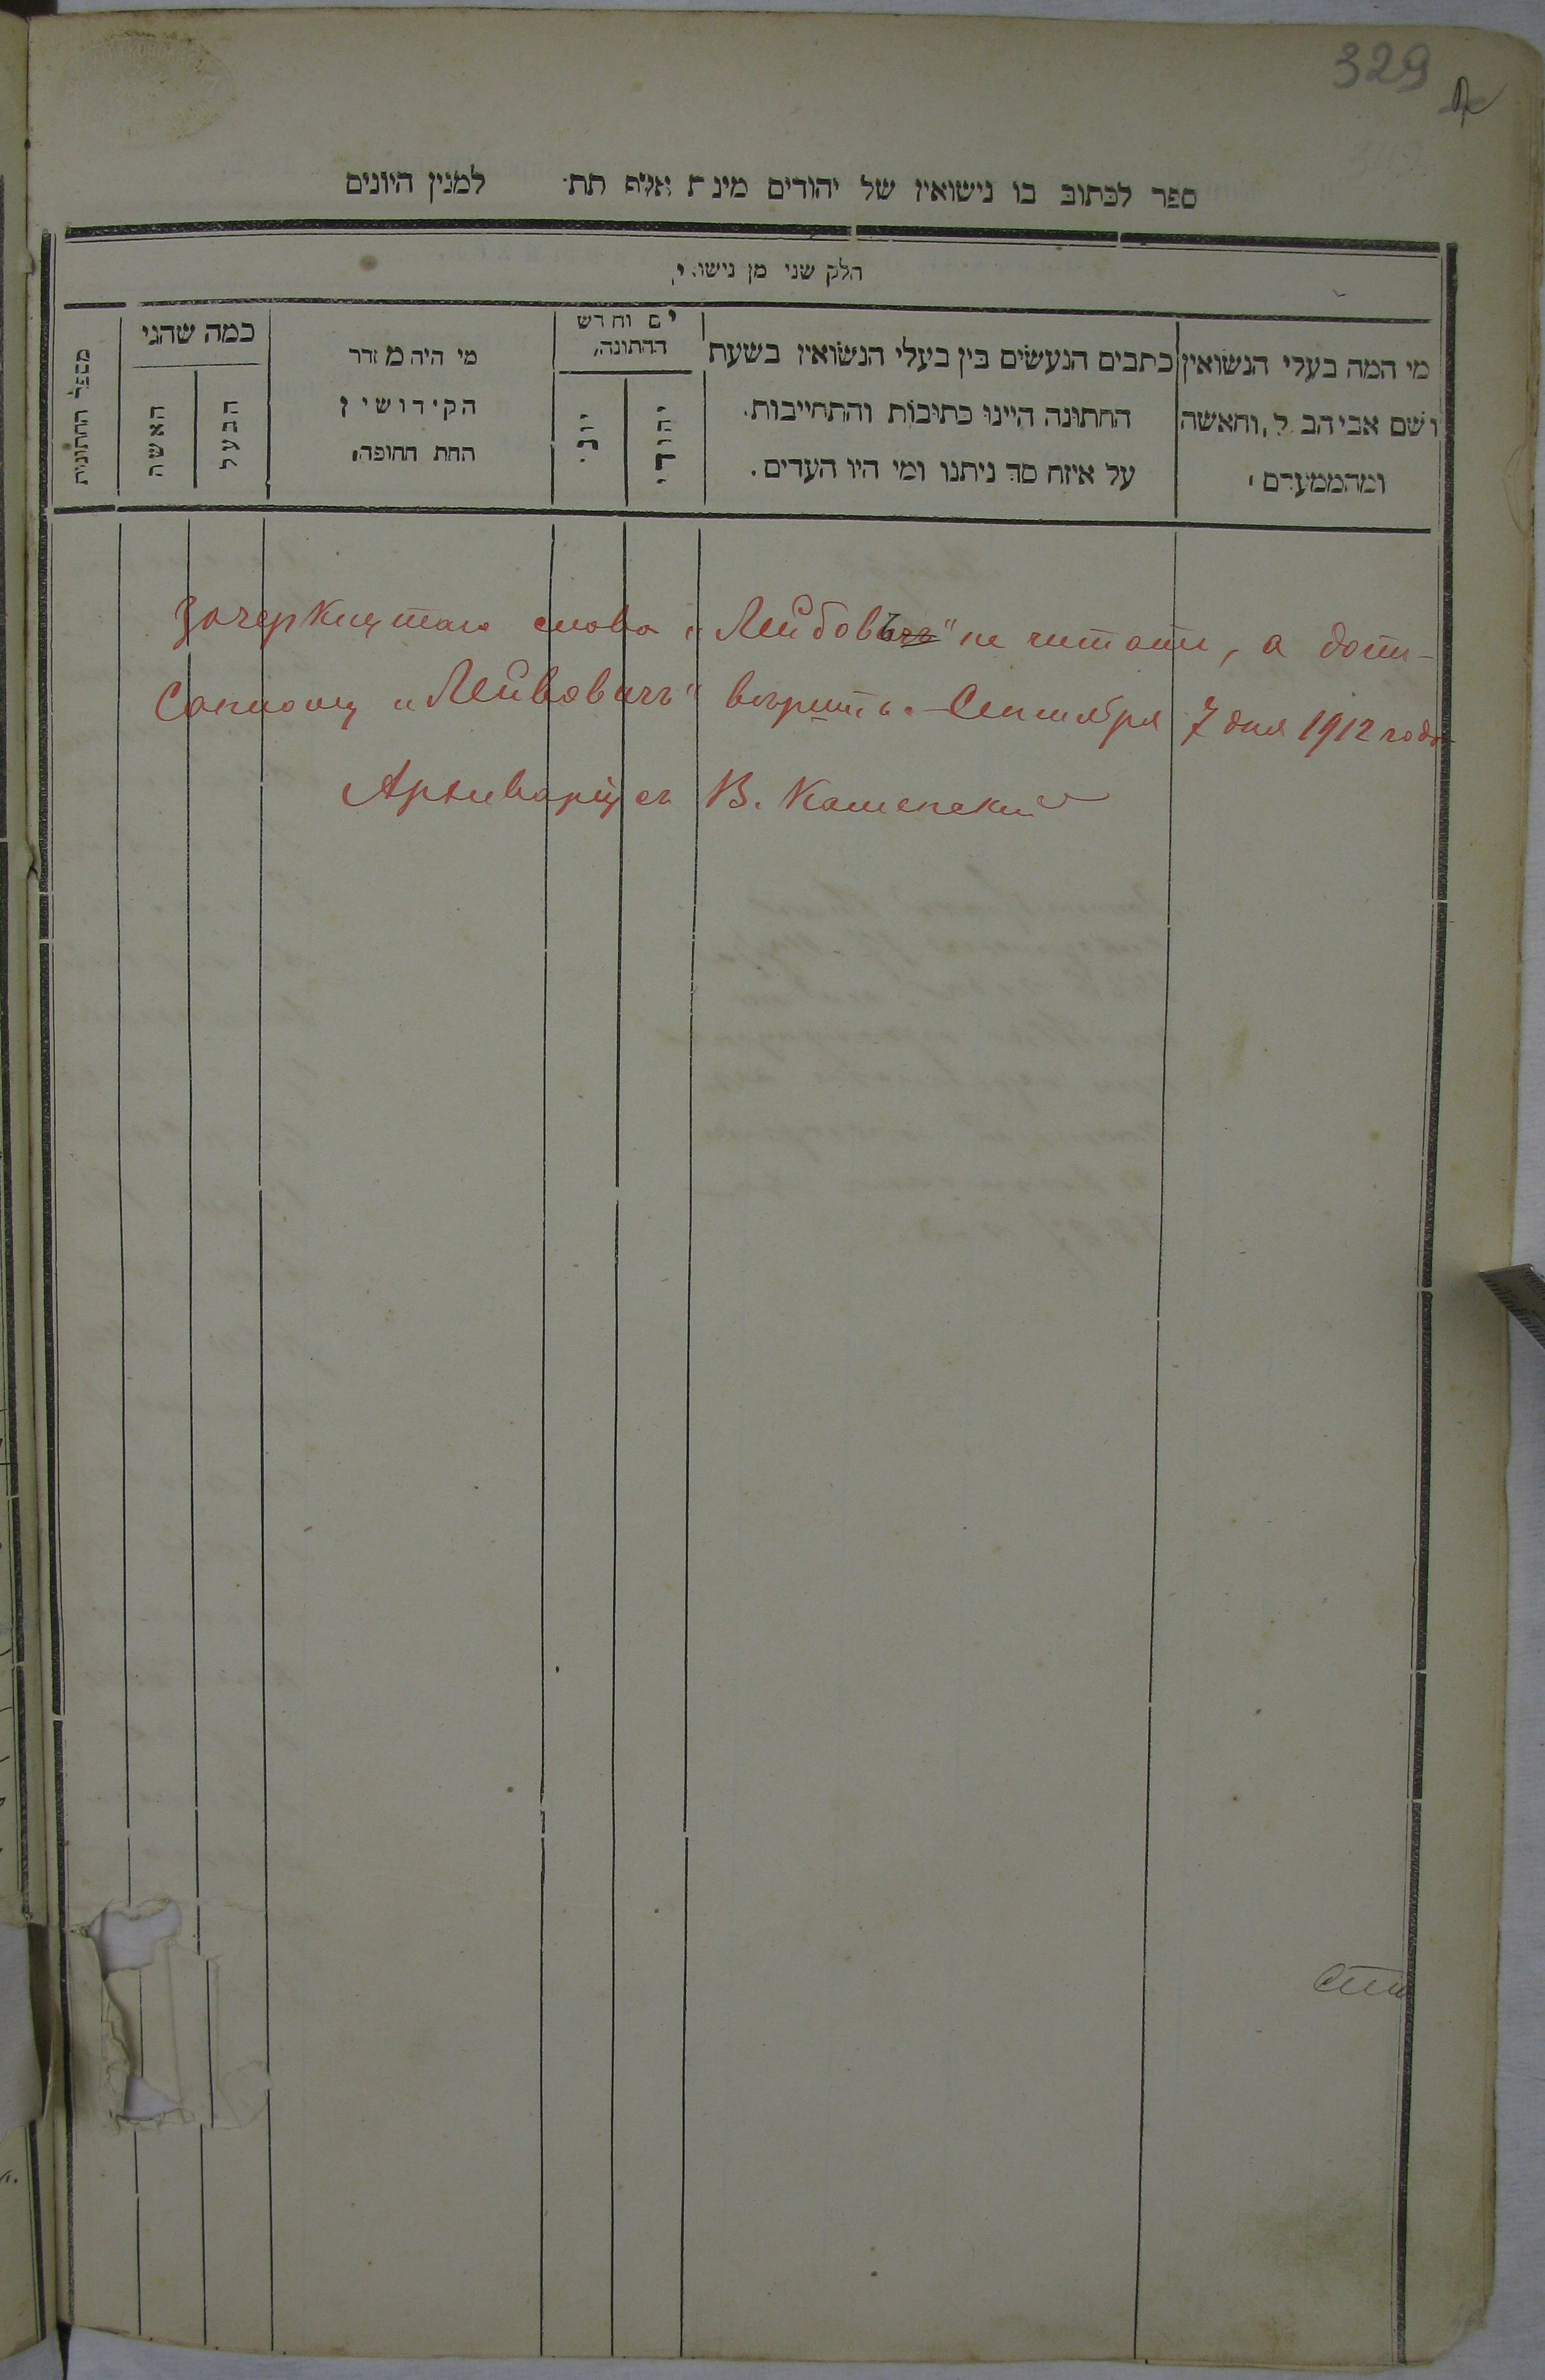 329
ספר לכתוב בו נישואין של יהודים מינת אלף תת למנין היונים
חלק שני מן נישואי,
מי המה בעלי הנשואין
ושם אביהבעל, והאשה
ומהממערם
כתבים הנעשים בין בעלי הנשואין בשעת
החתונה היינו כתובות והתחייבות.
על איזה סך ניתנו ומי היו העדים.
יום וחדש
החתונה,
יהודי
יוני
מי היה מזדר
הקידושין
החת החופה.
כמה שהני
הבעל
האשה
מספר החתונות
Зачеркнутаго слова „Лейбовъ" не читать, а допи-
санному „Лейбовичъ" вѣрить. Сентября 7 дня 1912 года
Архиваріусъ В. Каменскій